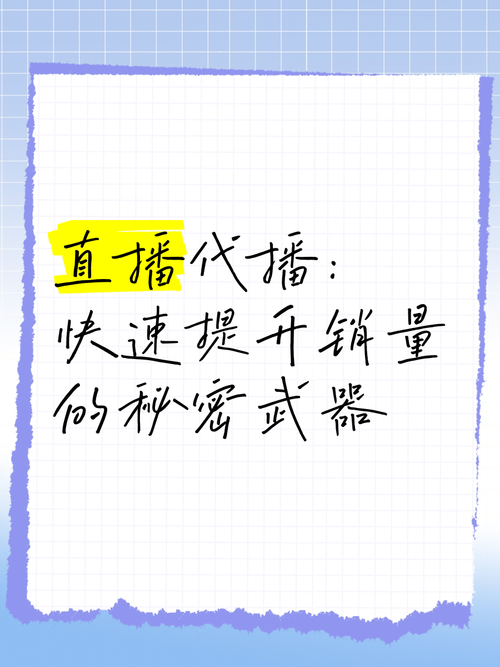 直播代播：
快速提升销量
的秘密武器